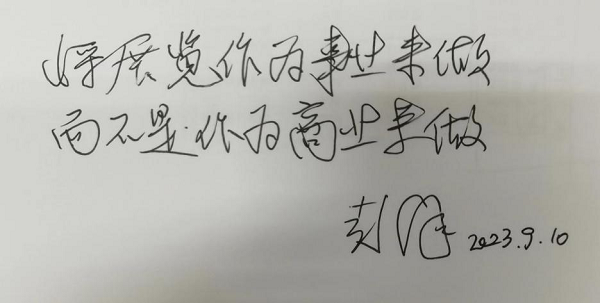 将展览作为事业来做
而不是作为商业来做
彭 2023.9.10